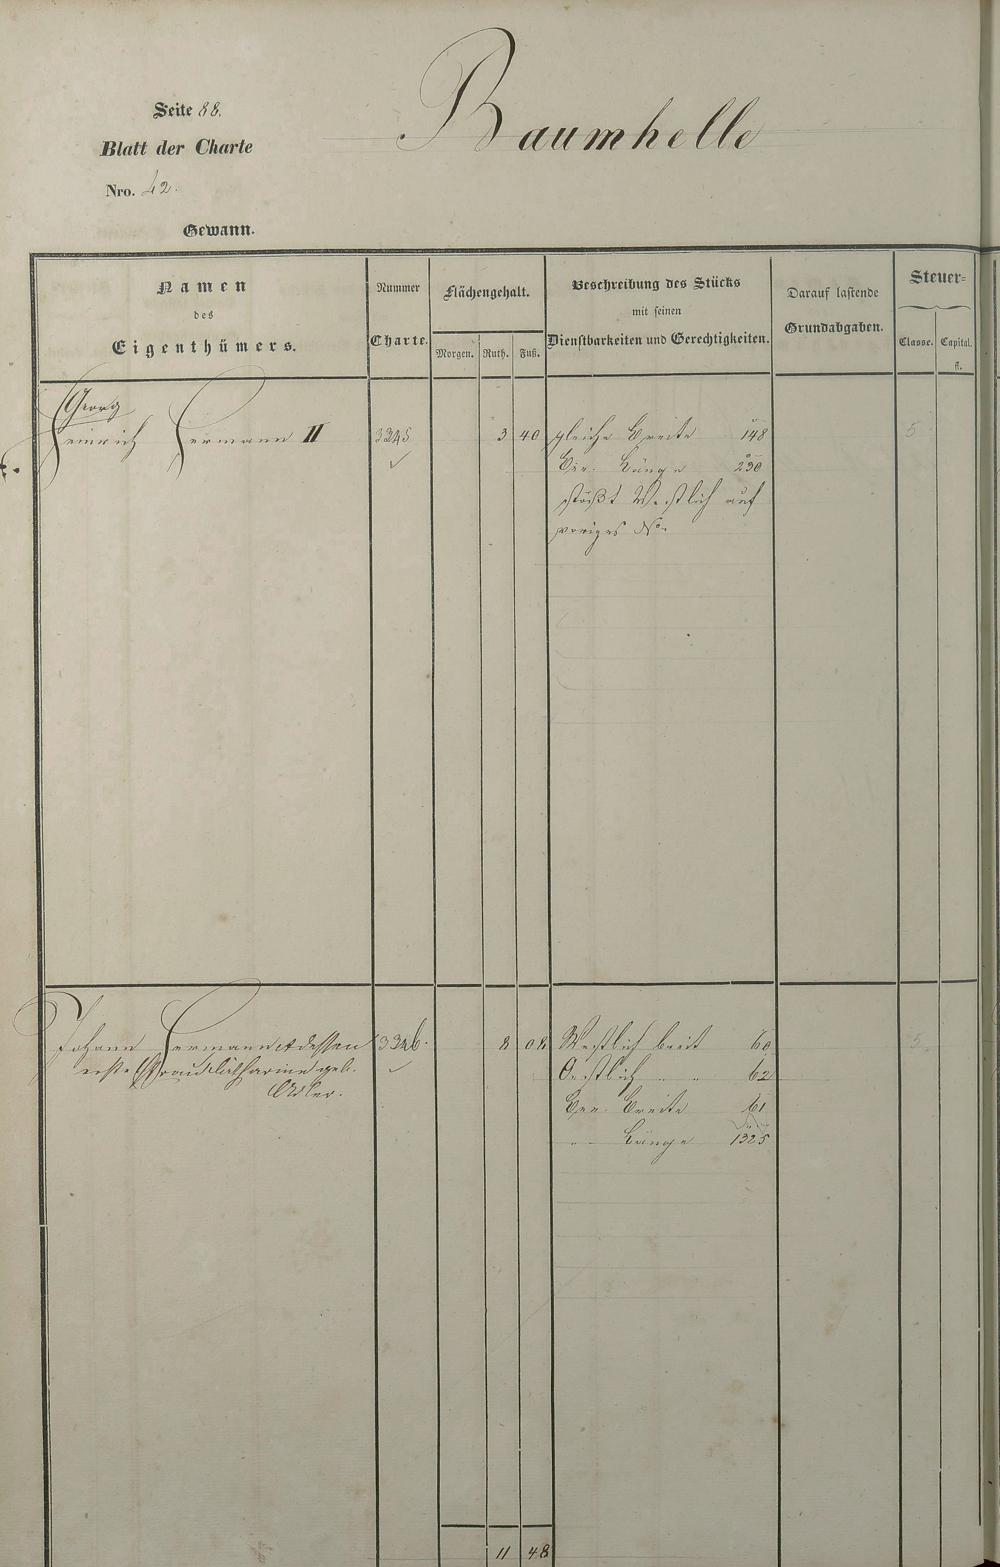 Seite 88.
Baumhelle
Blatt der Charte
Nro. 42.
Gewann.
Namen
des
Eigenthümers.
Nummer
Charte.
Flächengehalt.
Morgen. Ruth. Fuß.
Beschreibung des Stücks
mit seinen
Dienstbarkeiten und Gerechtigkeiten.
Darauf lastende
Grundabgaben.
Steuer-
Classe. Capital.
fl.
Georg
Heinrich Hermann II 3345 3 40 gleiche Breite 148 5
Ber. Länge 230
stößt Westlich auf
voriges No
Johann Hermann et dessen 3346. 8 08 Westlich breit 60 5.
erste Frau Catharine geb. Oestlich " " 62
Adler. Ber. Breite 61
" Länge 1325
11 48